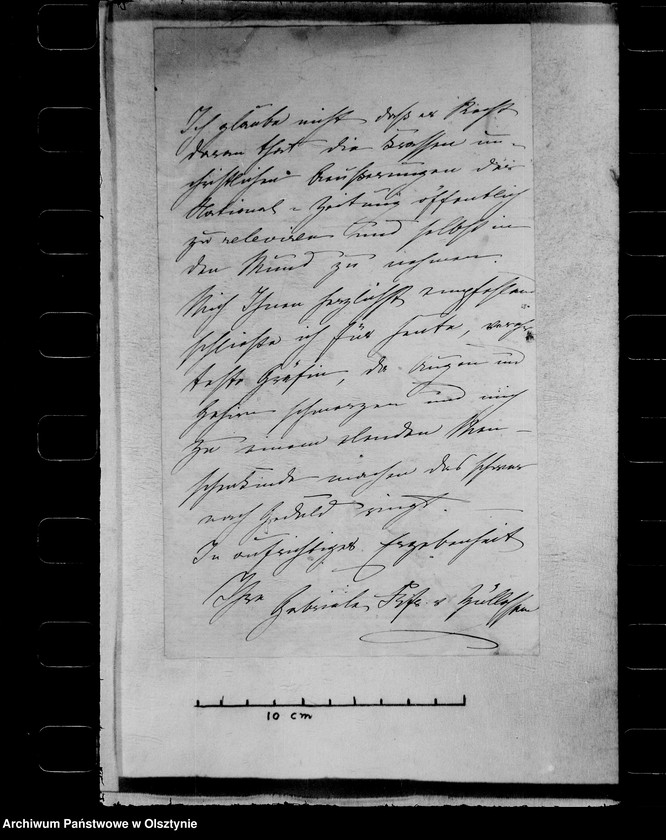 Ich glaube nicht daß er Recht
daran that die krassen un-
christlichen Aeußerungen der
National-Zeitung öffentlich
zu releviren und selbst in
den Mund zu nehmen.
Mich Ihnen herzlichst empfehlend
schließe ich für heute, verehr-
teste Gräfin, da Augen und
Gehirn schmerzen und mich
zu einem elenden Men-
schenkinde machen das schwer
nach Geduld ringt.
In aufrichtiger Ergebenheit
Ihre
Gabriele Frfr v
10 cm
Archiwum Państwowe w Olsztynie